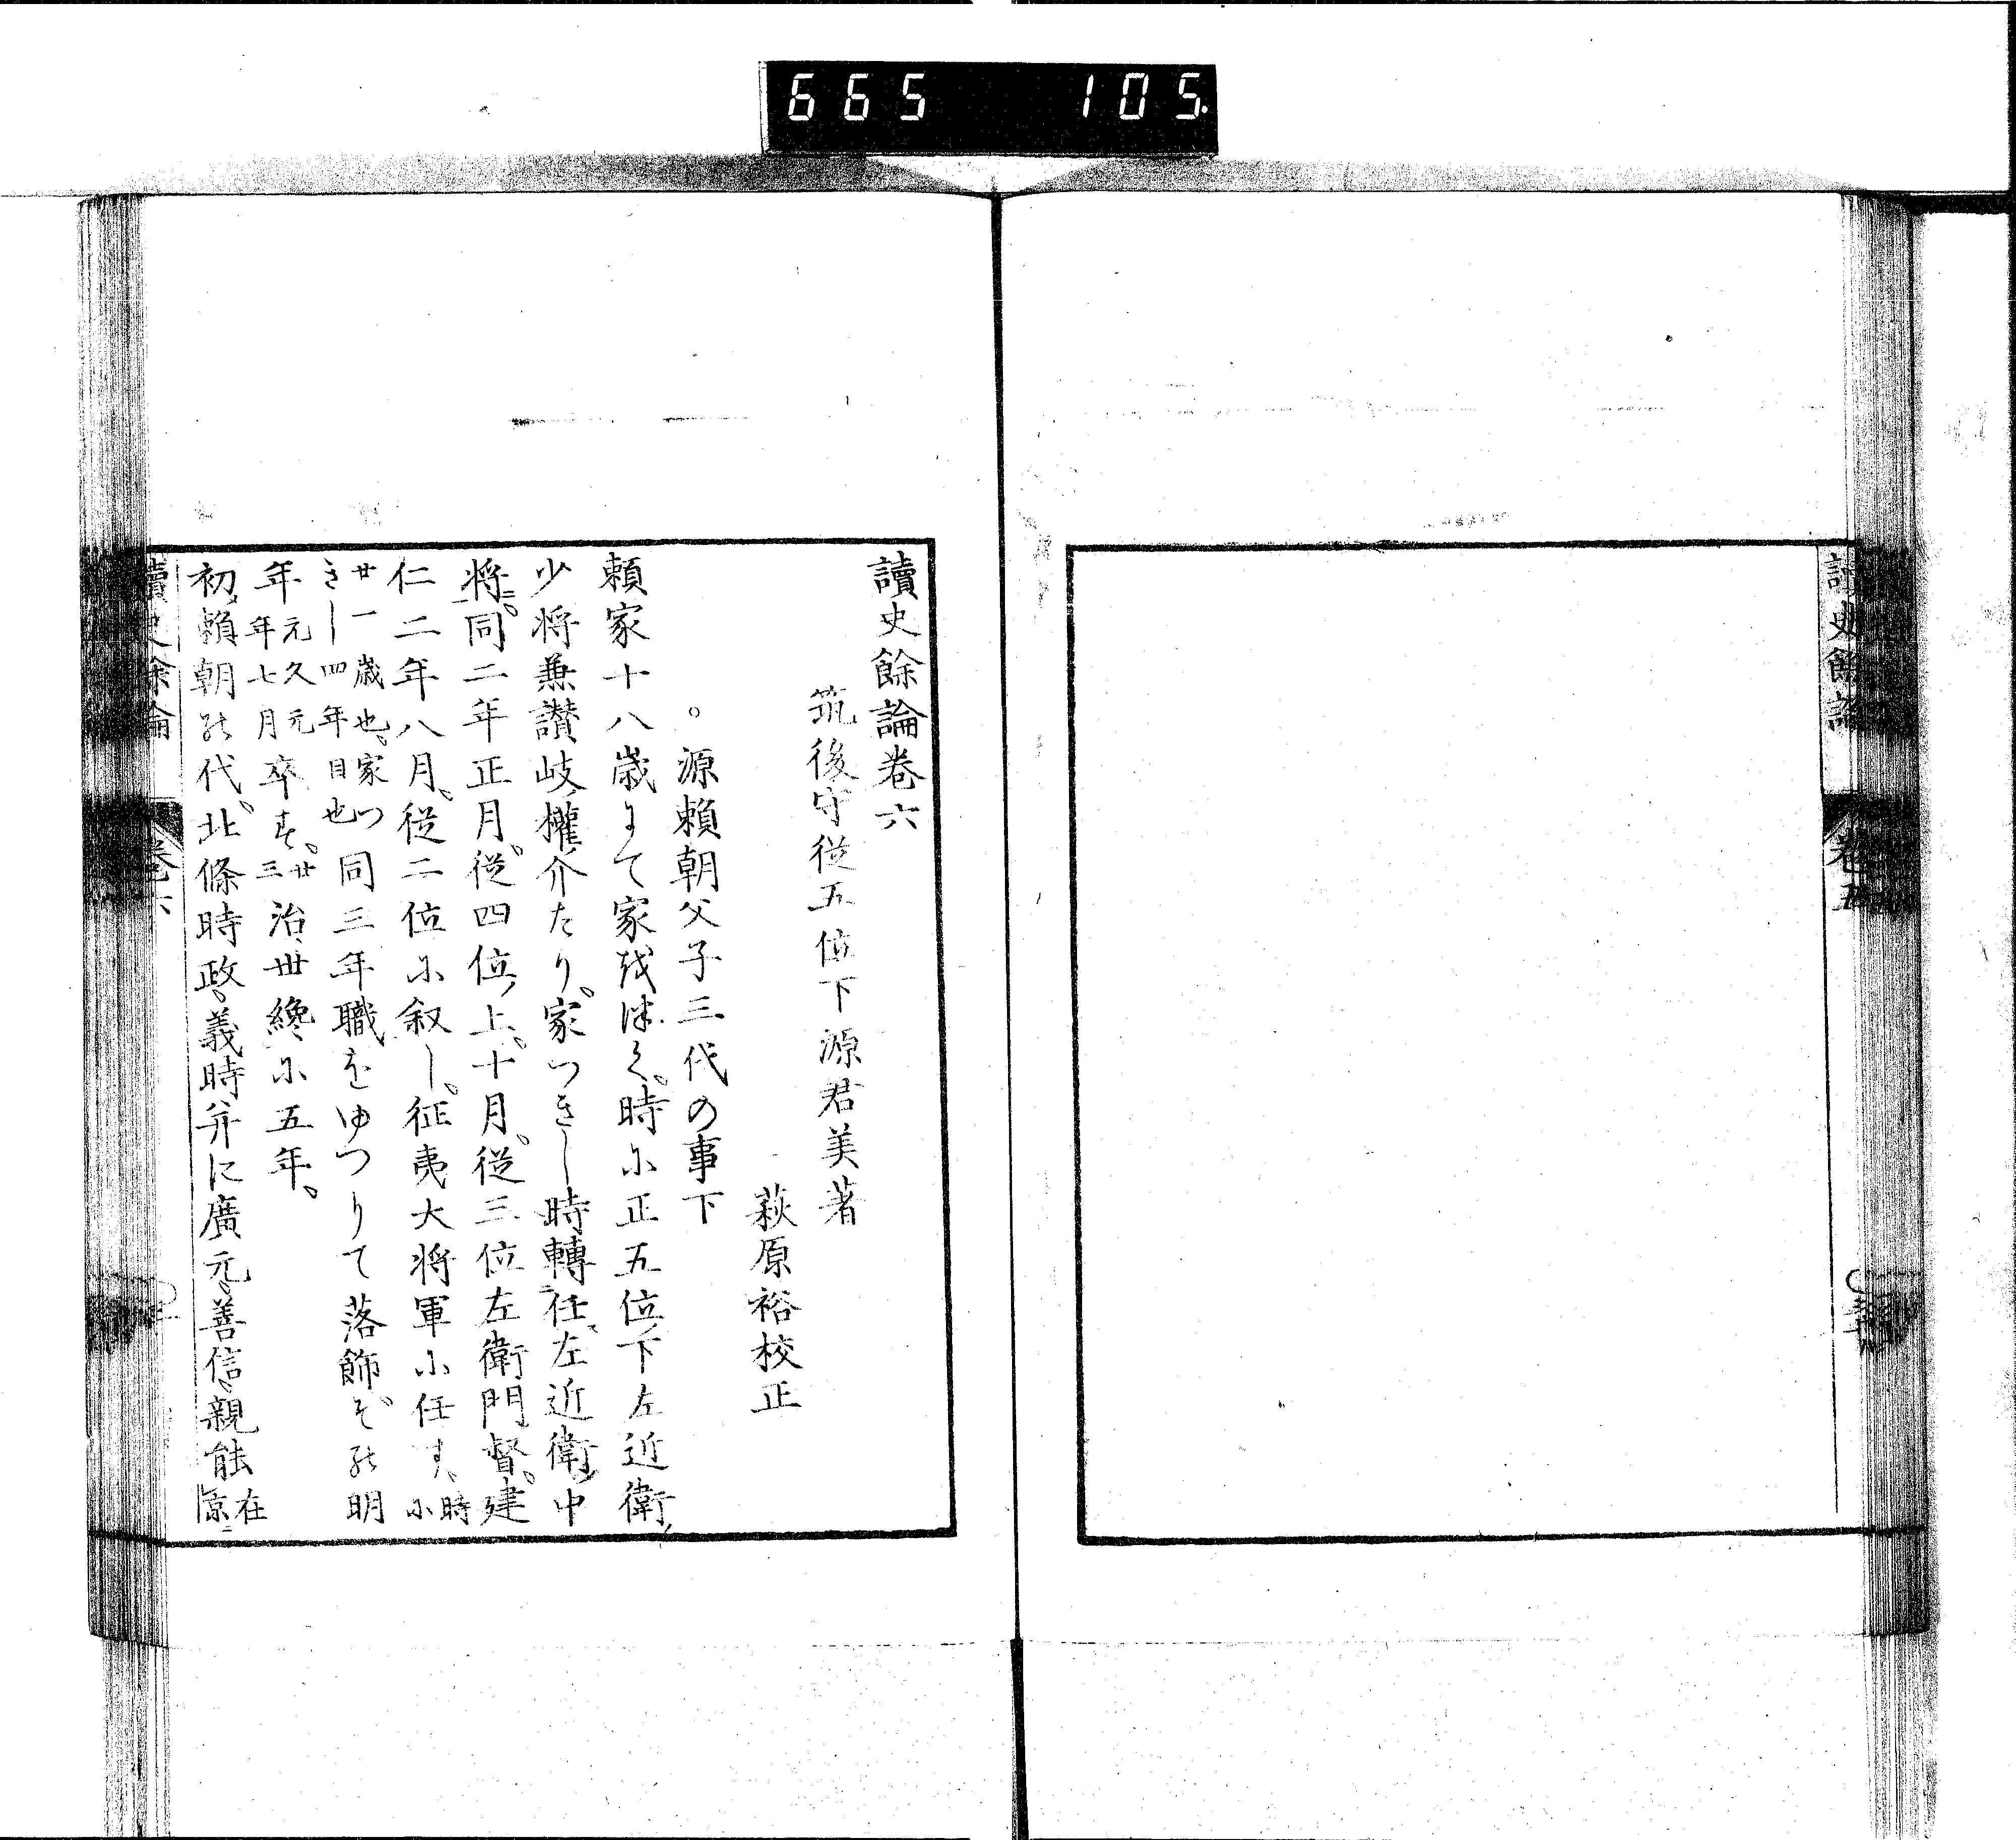 665 105.
讀史餘論
卷五
讀史餘論卷六
筑後守從五位下源君美著
萩原裕校正
。源賴朝父子三代の事下
賴家十八歳にて家をつぐ。時に正五位下左近衛
少将兼讃岐權介たり。家つきし時轉任、左近衛中
将。同二年正月。從四位上、十月。從三位左衛門督。建
仁二年八月、從二位に叙し。征夷大将軍に任す、時に
廿一歳也、家つきし四年目也同三年職をゆつりて落飾ぞの明
年元久元年七月卒す。廿三治世纔に五年。
初、賴朝の代、北條時政、義時并に廣元、善信、親能在京
讀史餘論
卷六